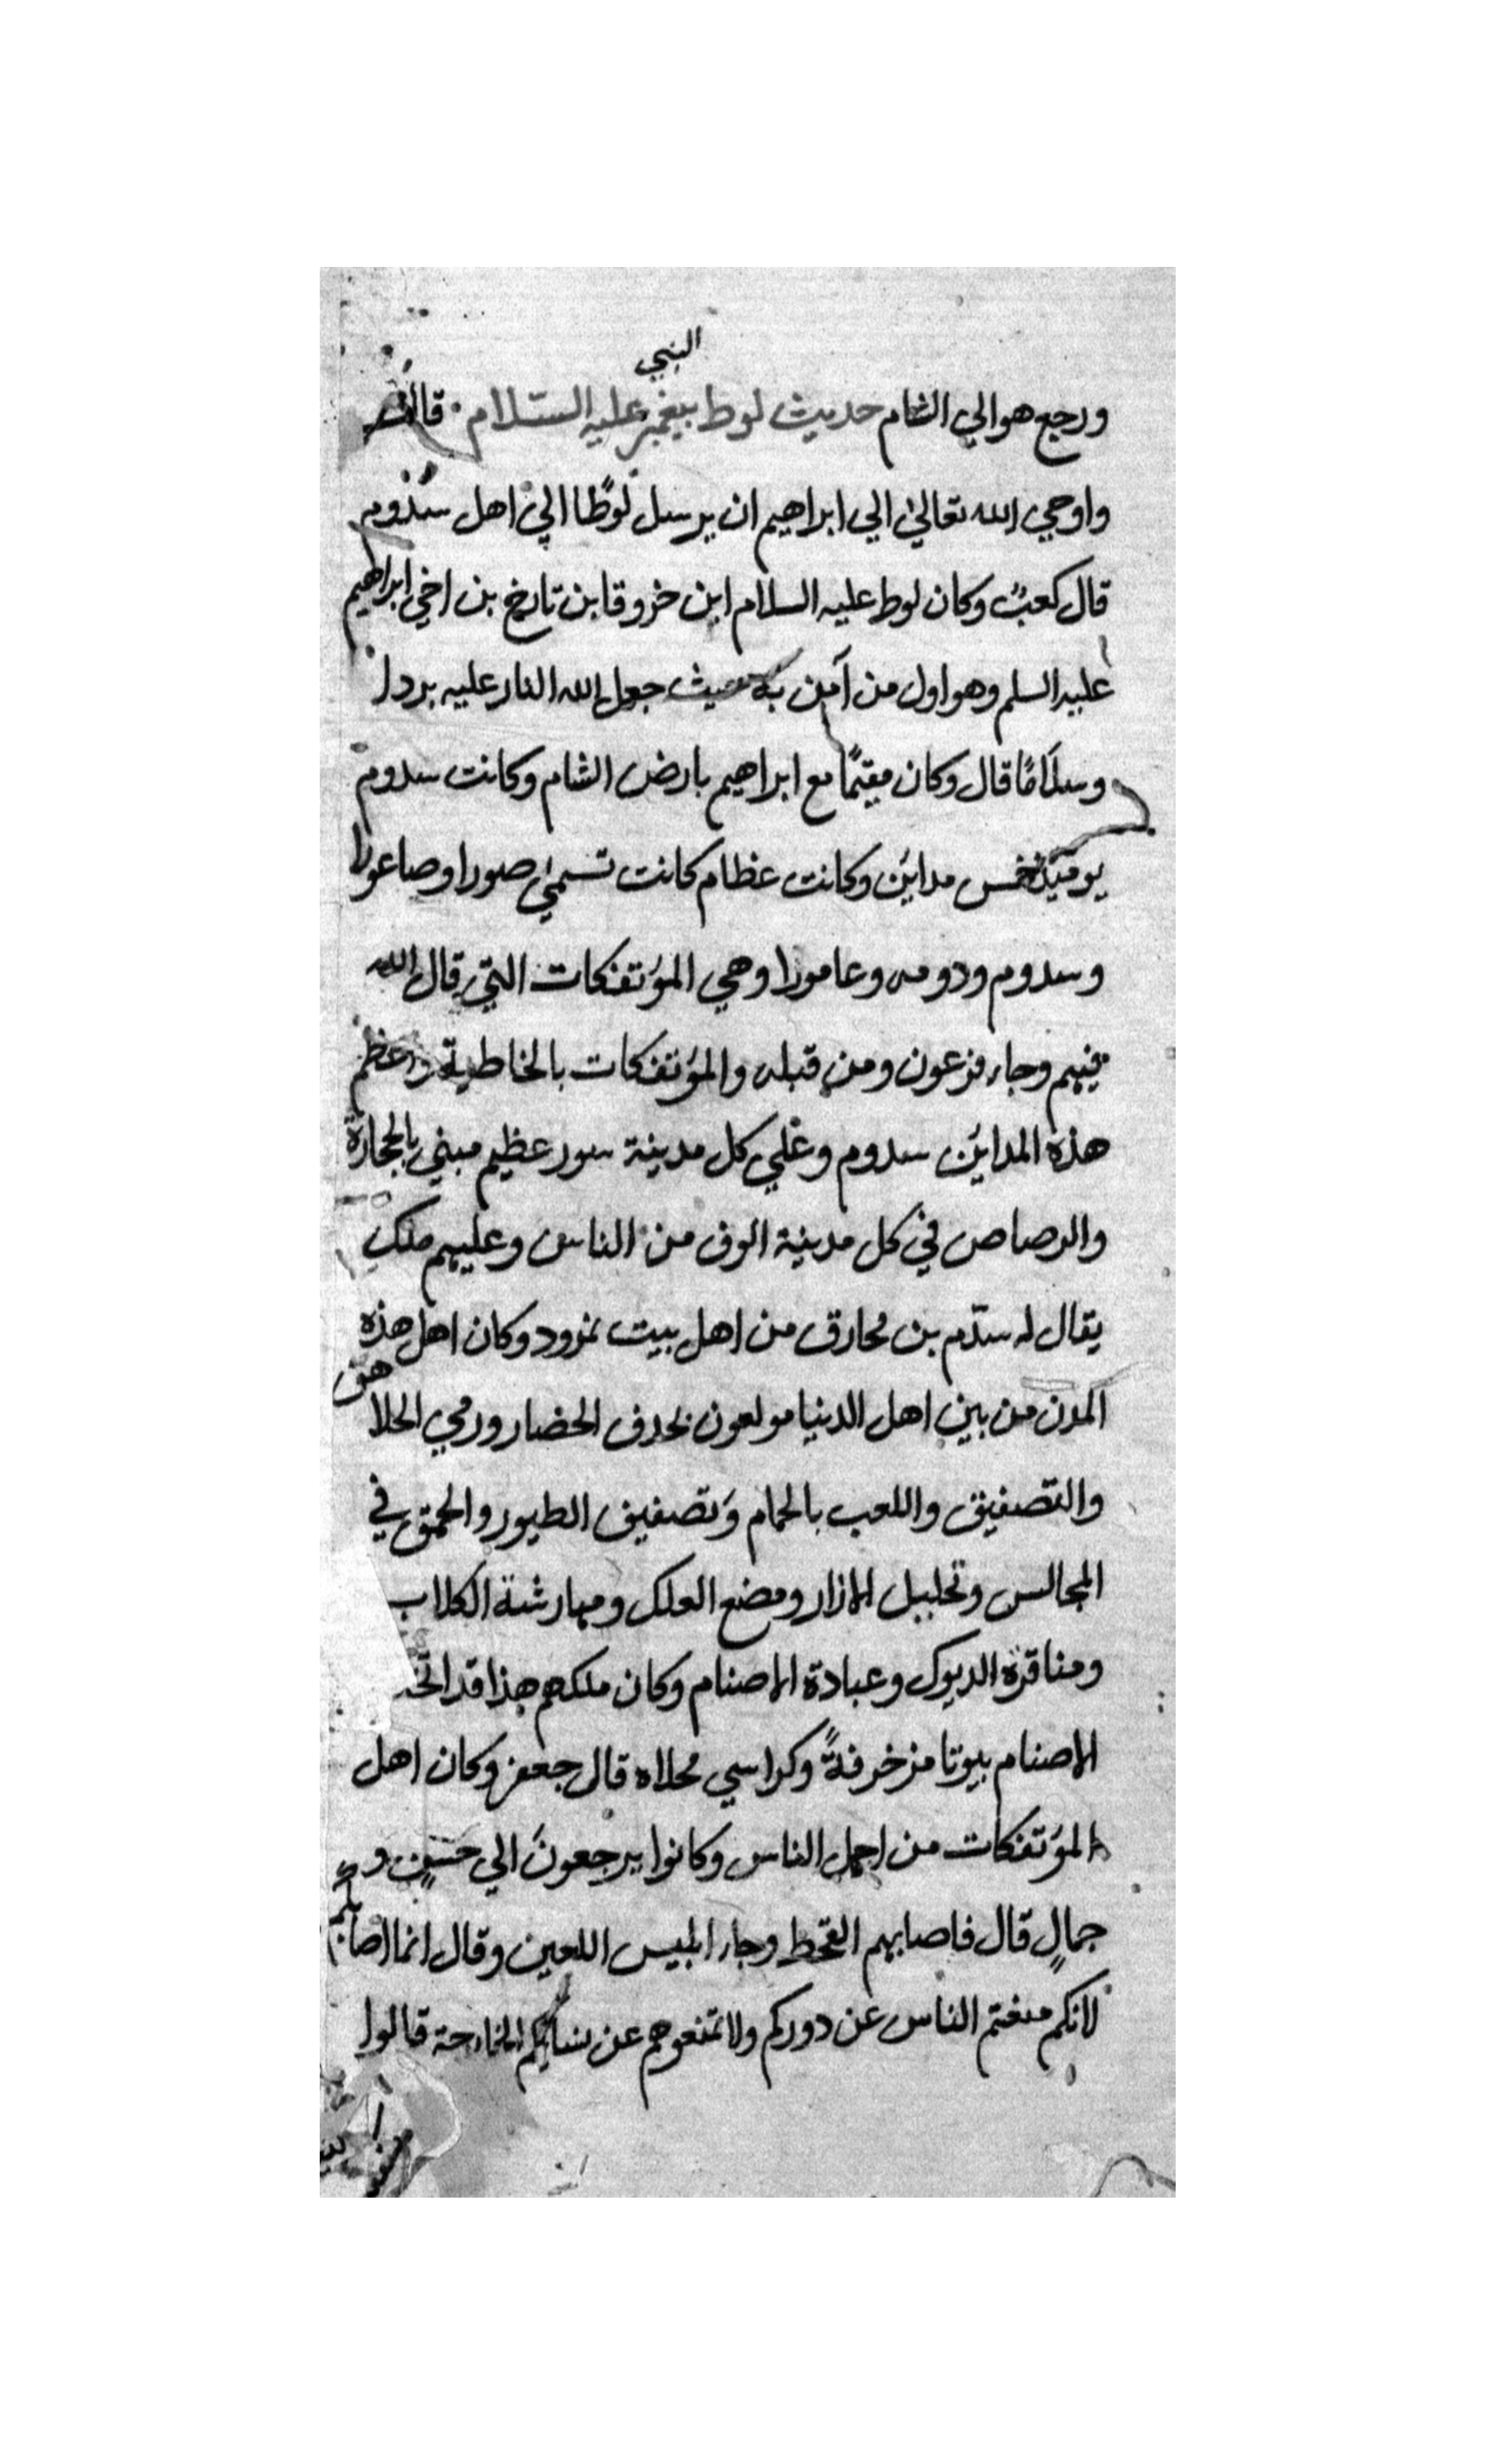 النبي
ورجع هو الي الشام حديث لوط بيغمبر عليه السلام قال
واوحي الله تعالي الي ابراهيم ان يرسل لوطًا الي اهل سدوم
قال كعبٌ وكان لوط عليه السلام ابن خروقا بن تارخ بن اخي ابراهيم
عليه السلم وهو اول من آمن به حيث جعل الله النار عليه بردا
وسلامًا قال وكان مقيمًا مع ابراهيم بارض الشام وكانت سدوم
يومئذ خمس مدائن وكانت عظام كانت تسمي صورا وصاعورا
وسدوم ودومه وعامورا وهي المؤتفكات التي قال الله
فيهم وجاء فرعون ومن قبله والمؤتفكات بالخاطية واعظم
هذه المدائن سدوم وعلي كل مدينة سور عظيم مبني بالحجارة
والرصاص في كل مدينة الوف من الناس وعليهم ملك
يقال له سدّم بن محارق من اهل بيت نمرود وكان اهل هذه
المدن من بين اهل الدنيا مولعون بحدف الحضار ورمي الحلاهق
والتصفيق واللعب بالحمام وتصفيق الطيور والحمق في
المجالس وتحليل الازار ومضع العلك ومهارشة الكلاب
ومناقرة الديوك وعبادة الاصنام وكان ملكهم هذا قد اتخذ
الاصنام بيوتا مزخرفةً وكراسي محلاه قال جعفر وكان اهل
المؤتفكات من اجمل الناس وكانوا يرجعونَ الي حسنٍ و
جمالٍ قال فاصابهم القحط وجاء ابليس اللعين وقال انما اصابكم
لانكم منعتم الناس عن دوركم ولا تمنعوهم عن بسائكم الخارجة قالوا